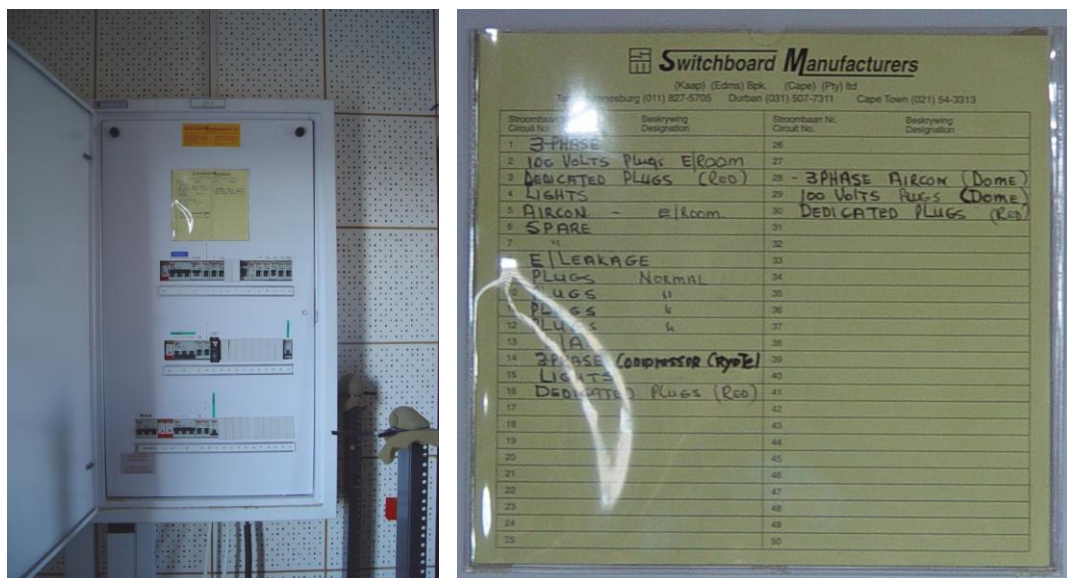 Switchboard Manufacturers
(Kaap) (Edms) Bpk. (Cape) (Pty) ltd
(011) 827-5705 Durban (031) 507-7311 Cape Town (021) 54-3313
Beskrywing Stroombaan Nr. Beskrywing
Circuit No. Designation Circuit No. Designation
1 3-PHASE 26
2 100 VOLTS Plugs E/Room 27
3 DEDICATED PLUGS (RED) 28 - 3PHASE AIRCON (DOME)
4 LIGHTS 29 100 VOLTS PLUGS (DOME)
5 AIRCON - E/Room. 30 DEDICATED PLUGS (RED)
6 SPARE 31
7 " 32
E/LEAKAGE 33
PLUGS NORMAL 34
PLUGS " 35
PLUGS " 36
12 PLUGS " 37
13 38
14 3-PHASE COMPRESSOR CRYOTEL 39
15 LIGHTS 40
16 DEDICATED PLUGS (RED) 41
17 42
18 43
19 44
20 45
21 46
22 47
23 48
24 49
25 50